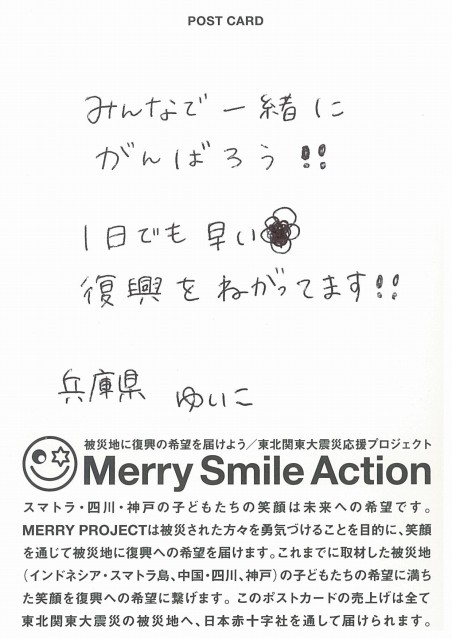 POST CARD
みんなで一緒に
がんばろう!!
1日でも早い
復興をねがってます!!
兵庫県 ゆいこ
被災地に復興の希望を届けよう／東北関東大震災応援プロジェクト
Merry Smile Action
スマトラ・四川・神戸の子どもたちの笑顔は未来への希望です。
MERRY PROJECTは被災された方々を勇気づけることを目的に、笑顔
を通じて被災地に復興への希望を届けます。これまでに取材した被災地
（インドネシア・スマトラ島、中国・四川、神戸）の子どもたちの希望に満ち
た笑顔を復興への希望に繋げます。このポストカードの売上げは全て
東北関東大震災の被災地へ、日本赤十字社を通して届けられます。